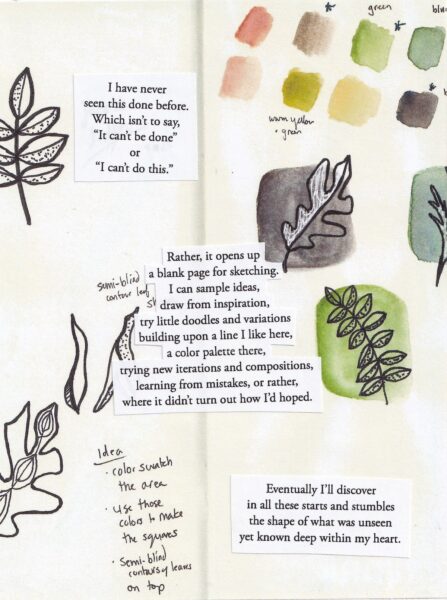 green
blu
I have never
seen this done before.
Which isn't to say,
"It can't be done"
or
"I can't do this."
warm yellow
+ green
Rather, it opens up
a blank page for sketching.
I can sample ideas,
draw from inspiration,
try little doodles and variations
building upon a line I like here,
a color palette there,
trying new iterations and compositions,
learning from mistakes, or rather,
where it didn't turn out how I'd hoped.
semi-blind
contour leaf
Idea
· color swatch
the area
· use those
colors to make
the squares
· Semi-blind
contours of leaves
on top
Eventually I'll discover
in all these starts and stumbles
the shape of what was unseen
yet known deep within my heart.